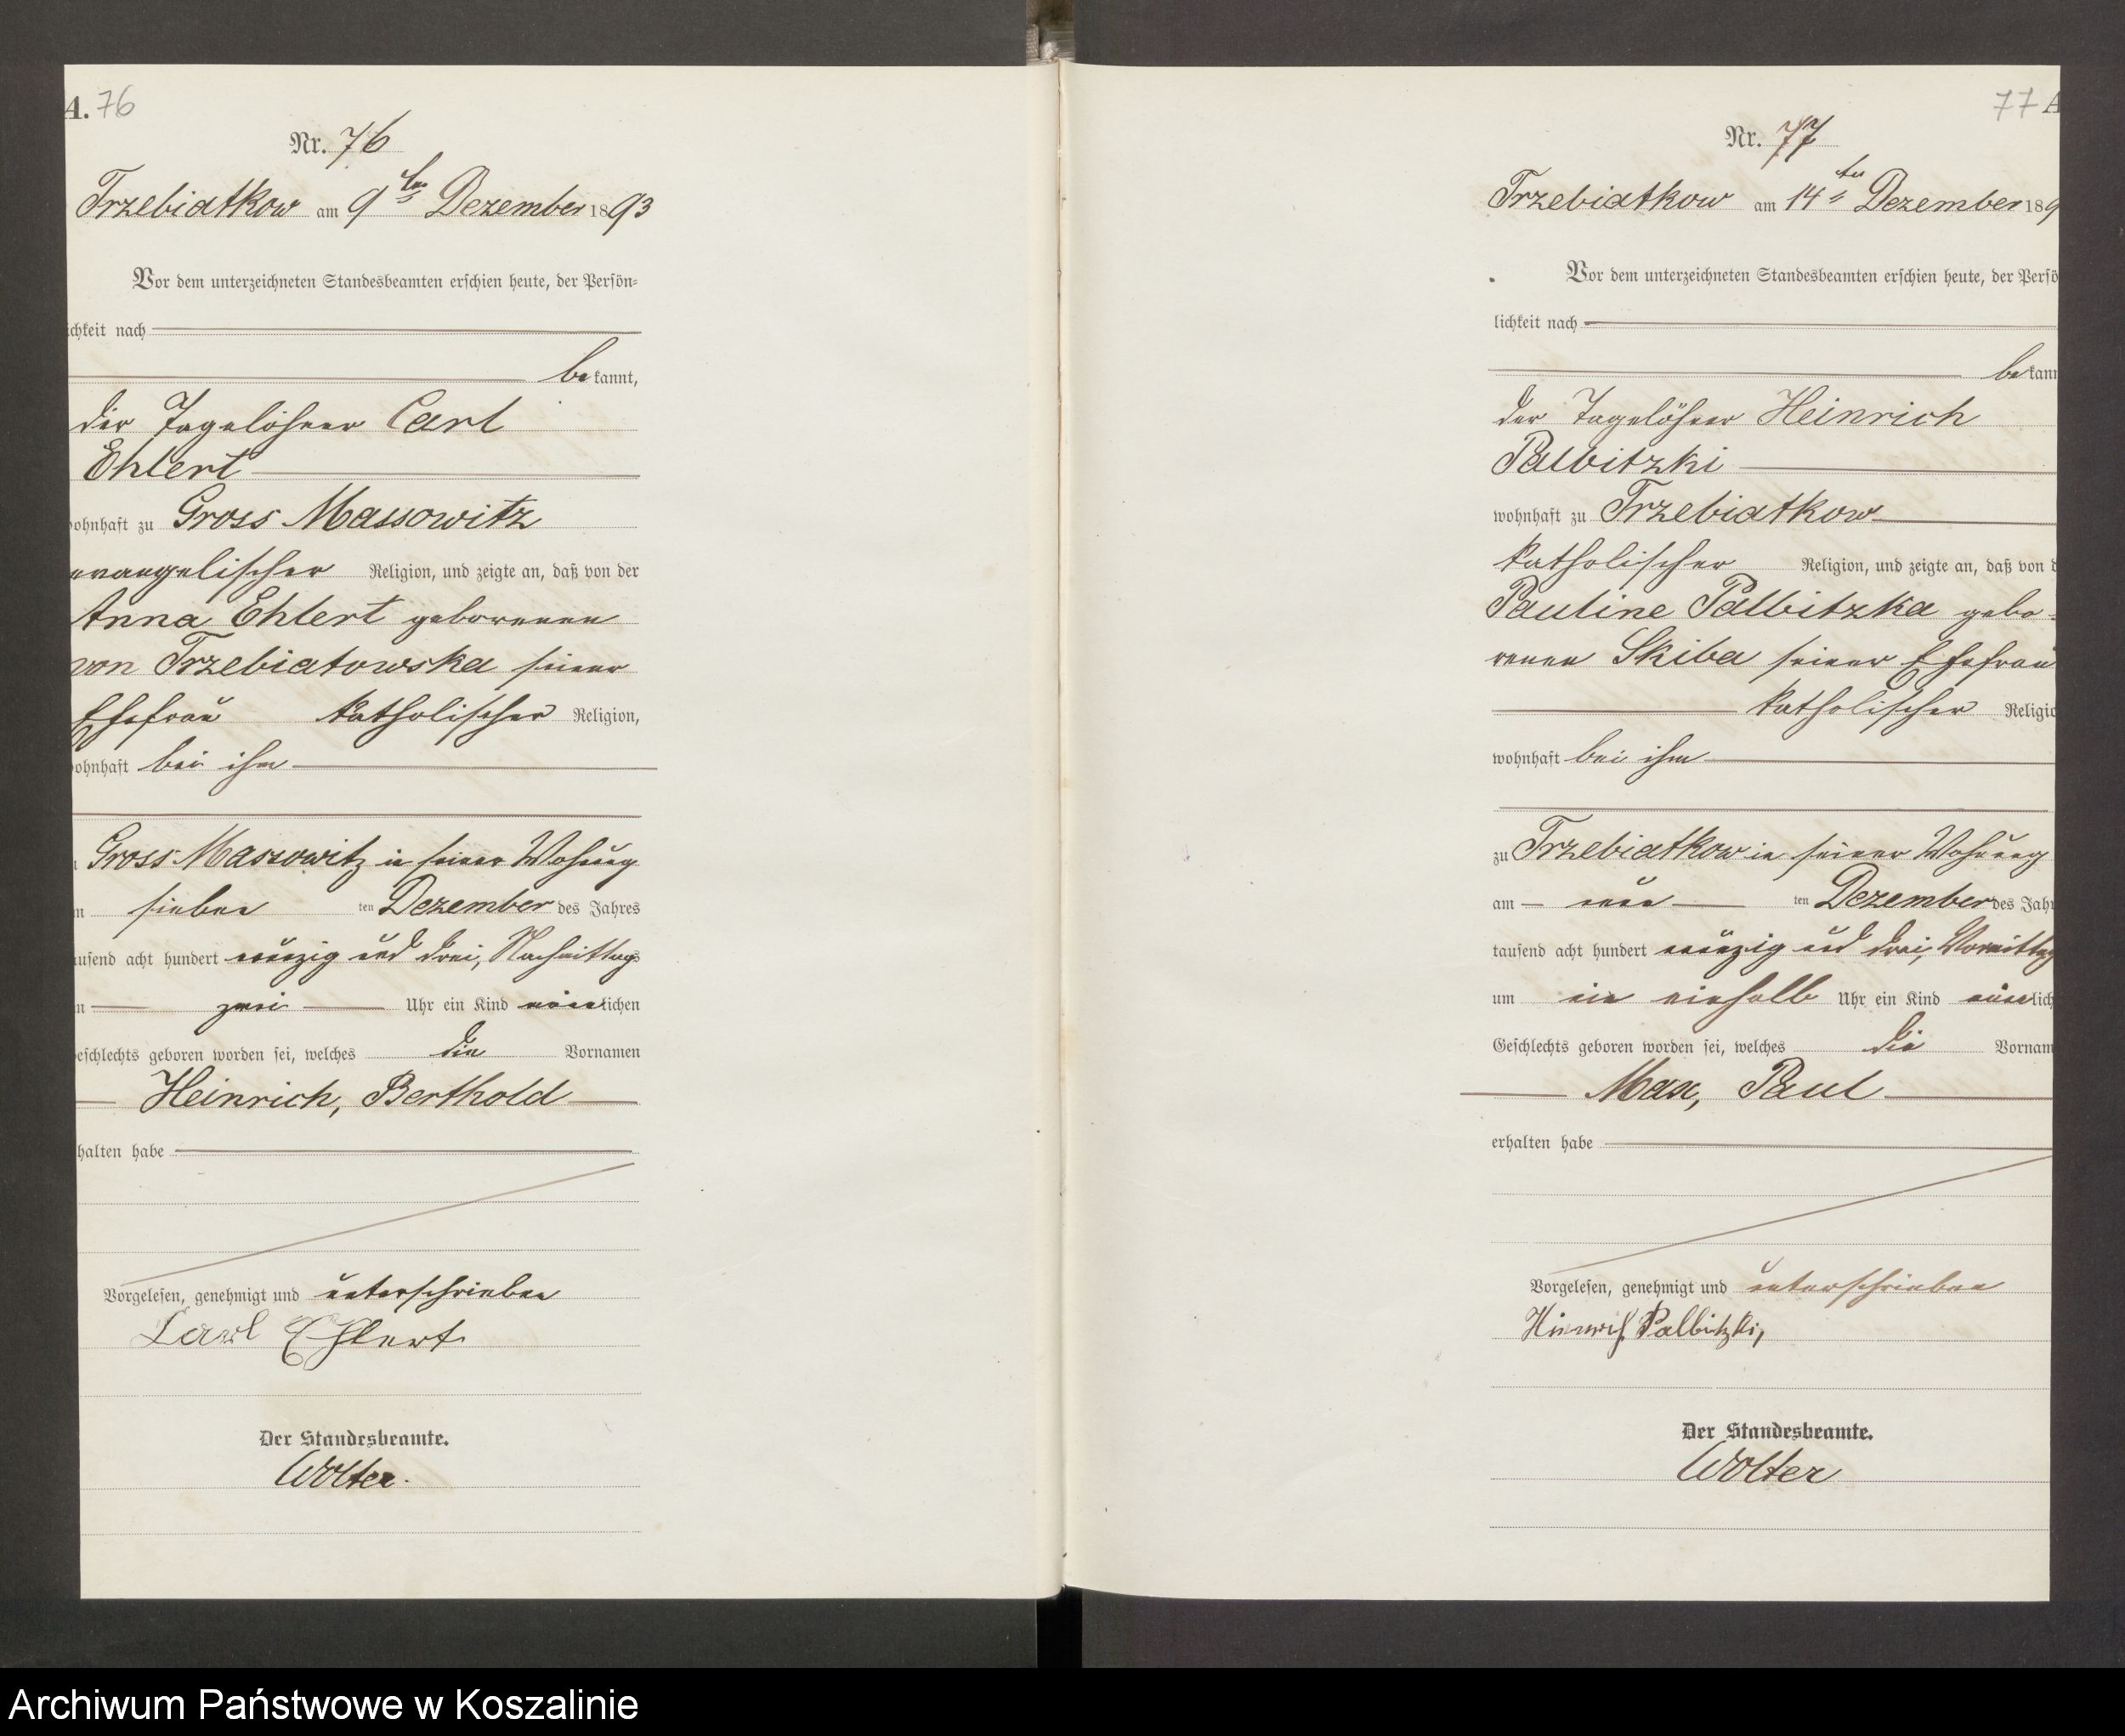 A. 76
Nr. 76
Trzebiatkow am 9ten Dezember 1893
Vor dem unterzeichneten Standesbeamten erschien heute, der Persön-
ichkeit nach
bekannt,
der Tagelöhner Carl
Ehlert
ohnhaft zu Gross Massowitz
evangelischer Religion, und zeigte an, daß von der
Anna Ehlert geborenen
von Trzebiatowska seiner
Ehefrau katholischer Religion,
ohnhaft bei ihm
Gross Massowitz in seiner Wohnung
sieben ten Dezember des Jahres
ausend acht hundert neunzig und drei, Nachmittags
zwei Uhr ein Kind männlichen
eschlechts geboren worden sei, welches die Vornamen
Heinrich, Berthold
halten habe
Vorgelesen, genehmigt und unterschrieben
Carl Ehlert
Der Standesbeamte.
Wolter.
77 A
Nr. 77
Trzebiatkow am 14ten Dezember 189
Vor dem unterzeichneten Standesbeamten erschien heute, der Persö
lichkeit nach
bekann
der Tagelöhner Heinrich
Palbitzki
wohnhaft zu Trzebiatkow
katholischer Religion, und zeigte an, daß von d
Pauline Palbitzka gebo-
renen Skiba seiner Ehefrau
katholischer Religio
wohnhaft bei ihm
zu Trzebiatkow in seiner Wohnung
am neun ten Dezember des Jahr
tausend acht hundert neunzig und drei, Vormittag
um ein einhalb Uhr ein Kind männlich
Geschlechts geboren worden sei, welches die Vornam
Max, Paul
erhalten habe
Vorgelesen, genehmigt und unterschrieben
Heinrich Palbitzki,
Der Standesbeamte.
Wolter
Archiwum Państwowe w Koszalinie